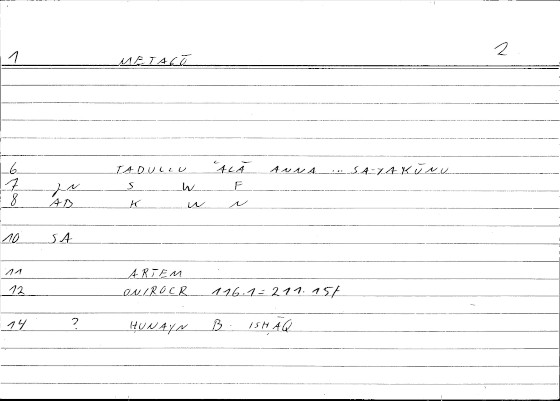 2
1 METAGŪ
6 TADULLU ʿALĀ ANNA ... SA-YAKŪNU
7 ȷN S W F
8 AB K W N
10 SA
11 ARTEM
12 ONIROCR 116.1 = 211.15f
14 ? HUNAYN B. ISHĀQ